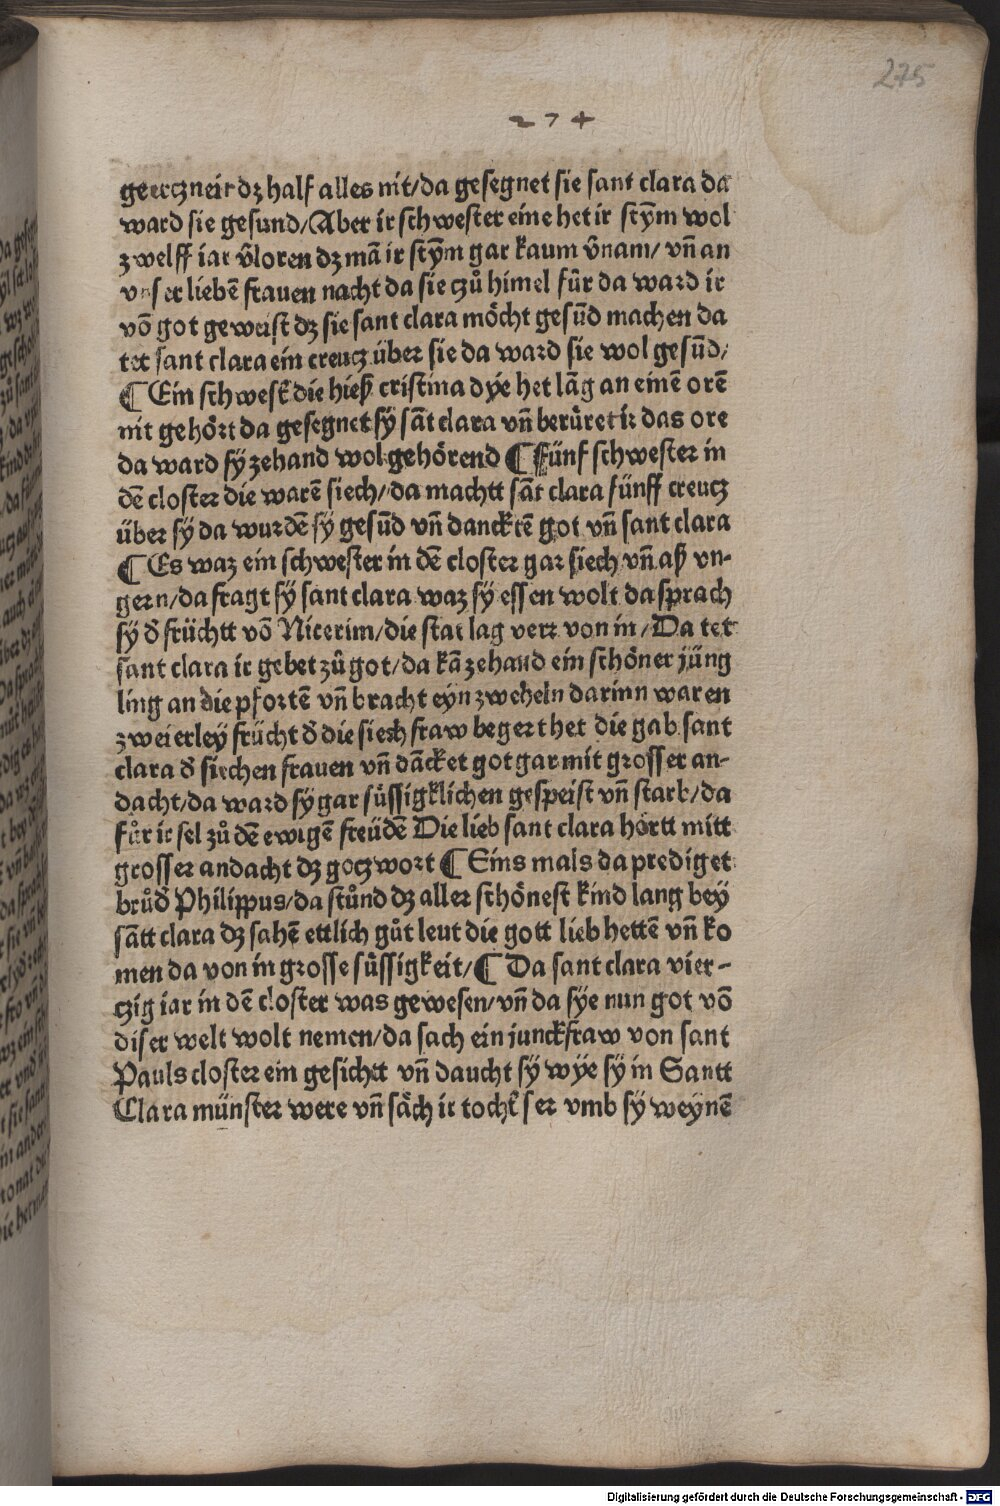 275
274
geertzneir dz half alles nit/da gesegnet sie sant clara da
ward sie gesund/Aber ir schwester eine het ir stỹm wol
zwelff iar ṽloren dz mã ir stỹm gar kaum ṽnam/ vñ an
vnser liebẽ frauen nacht da sie czů himel fůr da ward ir
võ got geweist dz sie sant clara mőcht gesũd machen da
tet sant clara ein creucz über sie da ward sie wol gesũd/
¶ Ein schwest̃ die hieß cristina dÿe het lãg an einẽ orẽ
nit gehőrt da gesegnet sÿ sãt clara vñ berůret ir das ore
da ward sÿ zehand wol gehőrend ¶ Fünf schwester in
dẽ closter die warẽ siech/da machtt sãt clara fünff creucz
über sÿ da wurdẽ sÿ gesũd vñ dancktẽ got vñ sant clara
¶ Es waz ein schwester in dẽ closter gar siech vñ aß vn-
gern/da fragt sÿ sant clara waz sÿ essen wolt da sprach
sÿ d̃ früchtt võ Nicerim/die stat lag verr von in/Da tet
sant clara ir gebet zů got/da kã zehand ein schőner jüng
ling an die pfortẽ vñ bracht eyn zweheln darinn waren
zweierleÿ frücht d̃ die siech fraw begert het die gab sant
clara d̃ siechen frauen vñ dãcket got gar mit grosser an-
dacht/da ward sÿ gar sůssigklichen gespeist vñ starb/da
fůr ir sel zů dẽ ewigẽ freüdẽ Die lieb sant clara hőrtt mitt
grosser andacht dz gocz wort ¶ Eins mals da prediget
brůd̃ Philippus/da stůnd dz aller schőnest kind lang beÿ
sãtt clara dz sahẽ ettlich gůt leut die gott lieb hettẽ vñ ko
men da von in grosse sůssigkeit/¶ Da sant clara vier-
czig iar in dẽ closter was gewesen/vñ da sÿe nun got võ
diser welt wolt nemen/da sach ein junckfraw von sant
Pauls closter ein gesichtt vñ daucht sÿ wÿe sÿ in Santt
Clara münster were vñ säch ir tocht̃ ser vmb sÿ weÿnẽ
Digitalisierung gefördert durch die Deutsche Forschungsgemeinschaft - DFG